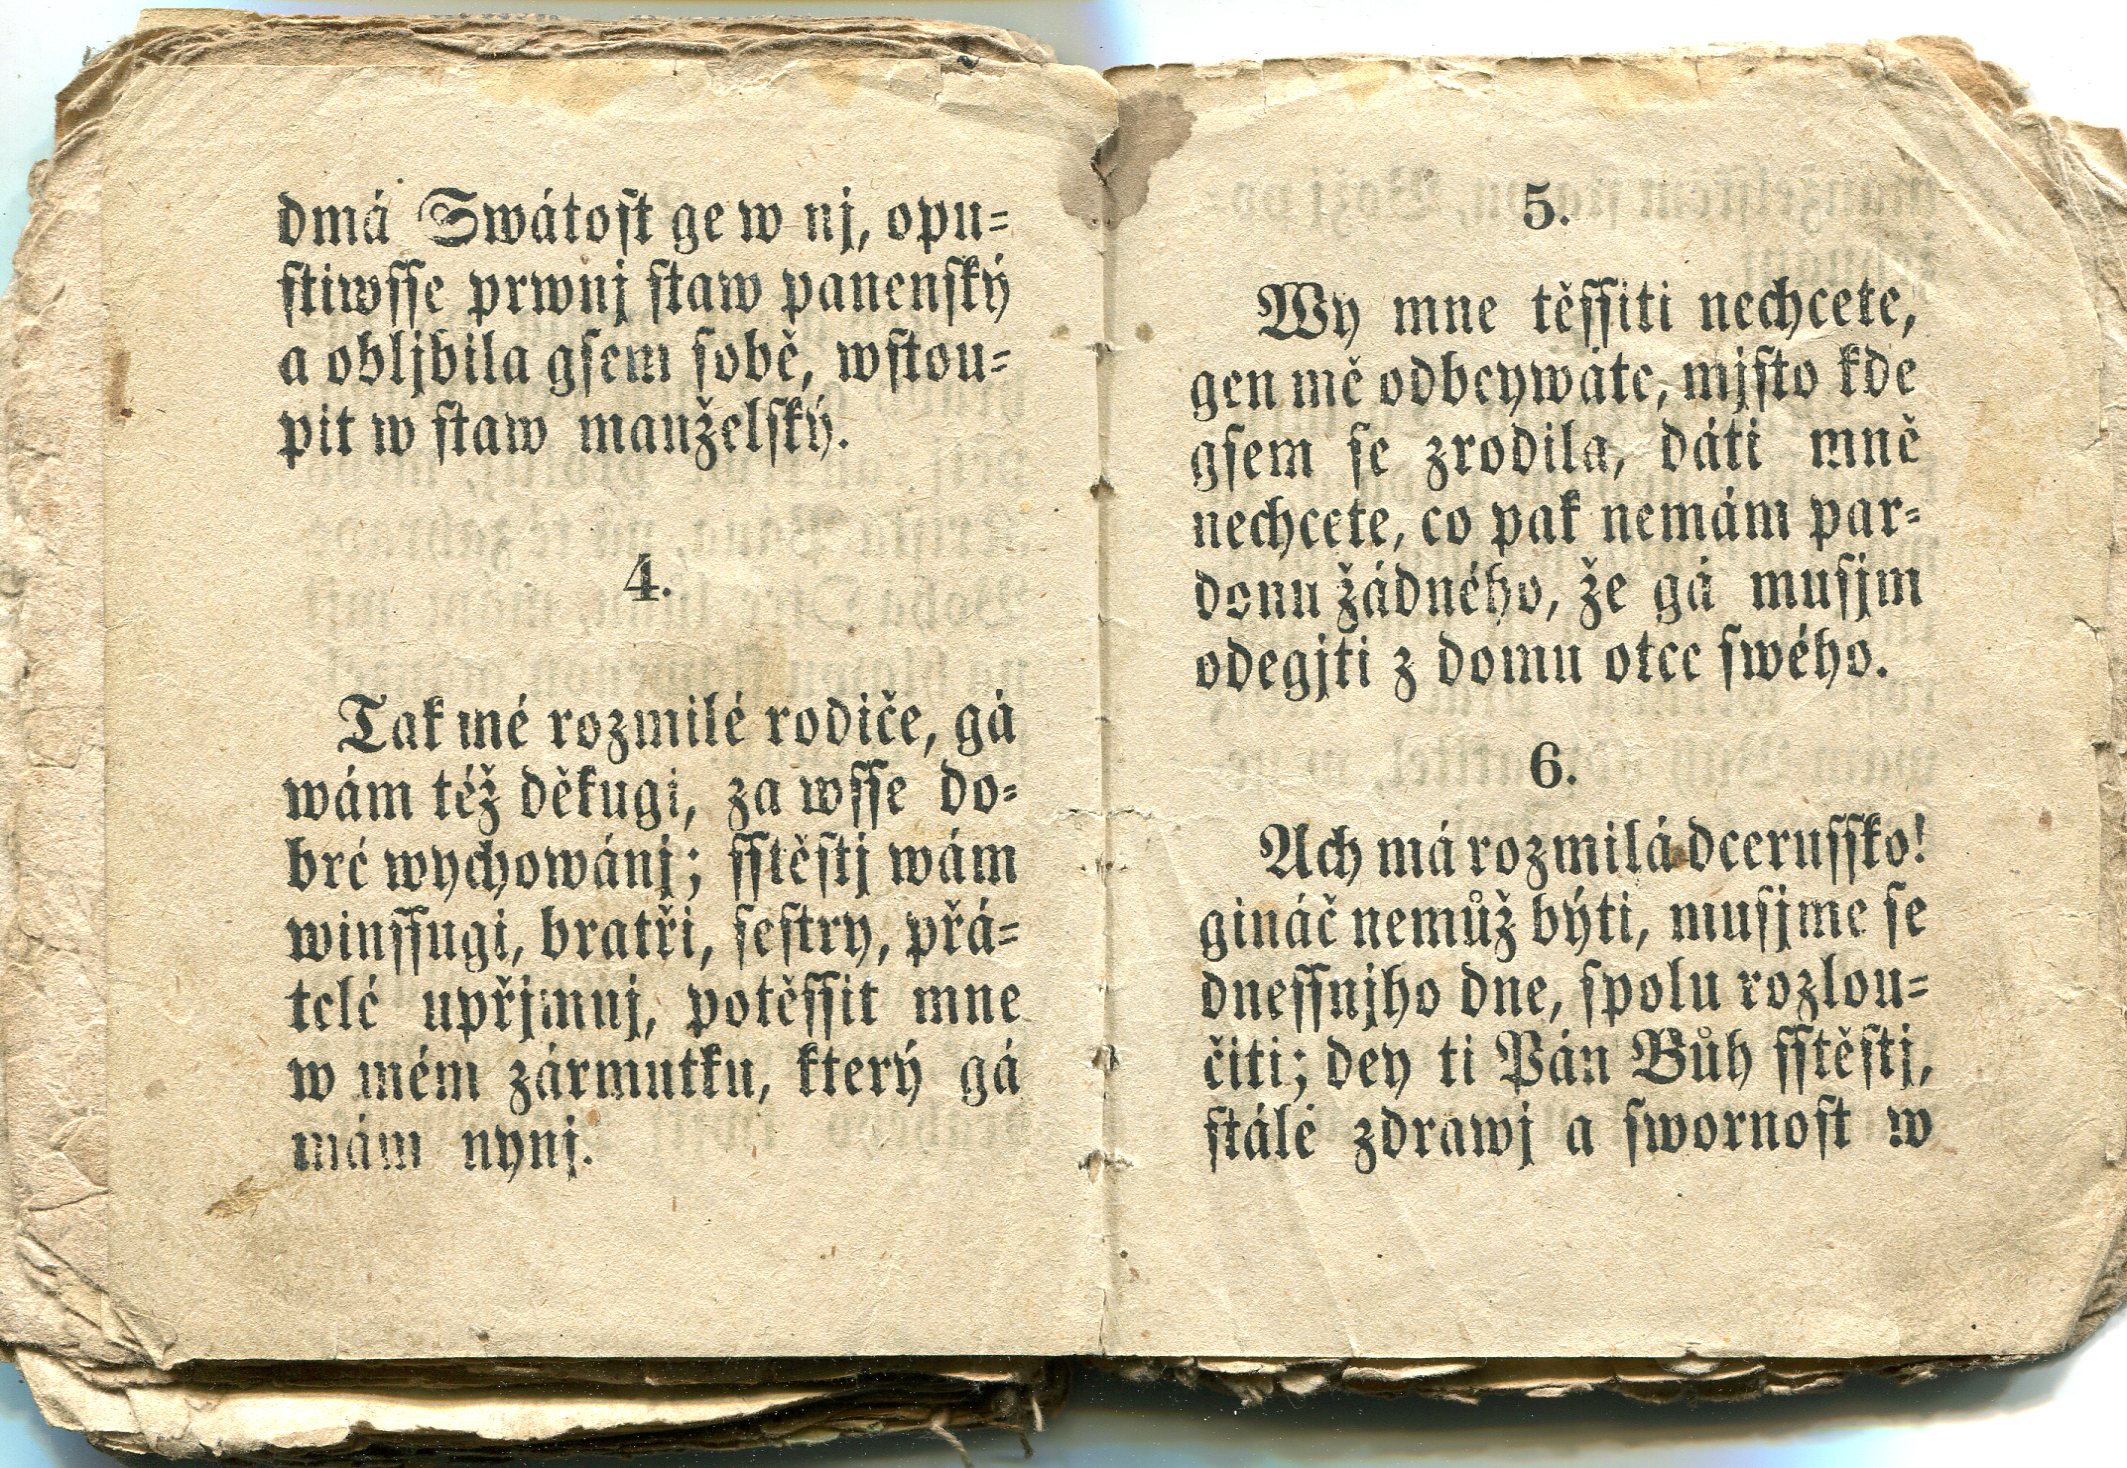 dmá Swátost ge w nj, opu=
stiwsse prwnj staw panenský
a obljbila gsem sobě, wstou=
pit w staw manželský.
4.
Tak mé rozmilé rodiče, gá
wám též děkugi, za wsse do=
bré wychowánj; sstěstj wám
winssugi, bratři, sestry, přá=
telé upřjmnj, potěssit mne
w mém zármutku, který gá
mám nynj.
5.
Wy mne těssiti nechcete,
gen mě odbeywáte, mjsto kde
gsem se zrodila, dáti mně
nechcete, co pak nemám par=
donu žádného, že gá musjm
odegjti z domu otce swého.
6.
Ach má rozmilá dcerussko!
gináč nemůž býti, musjme se
dnessnjho dne, spolu rozlou=
čiti; dey ti Pán Bůh sstěstj,
stálé zdrawj a swornost w